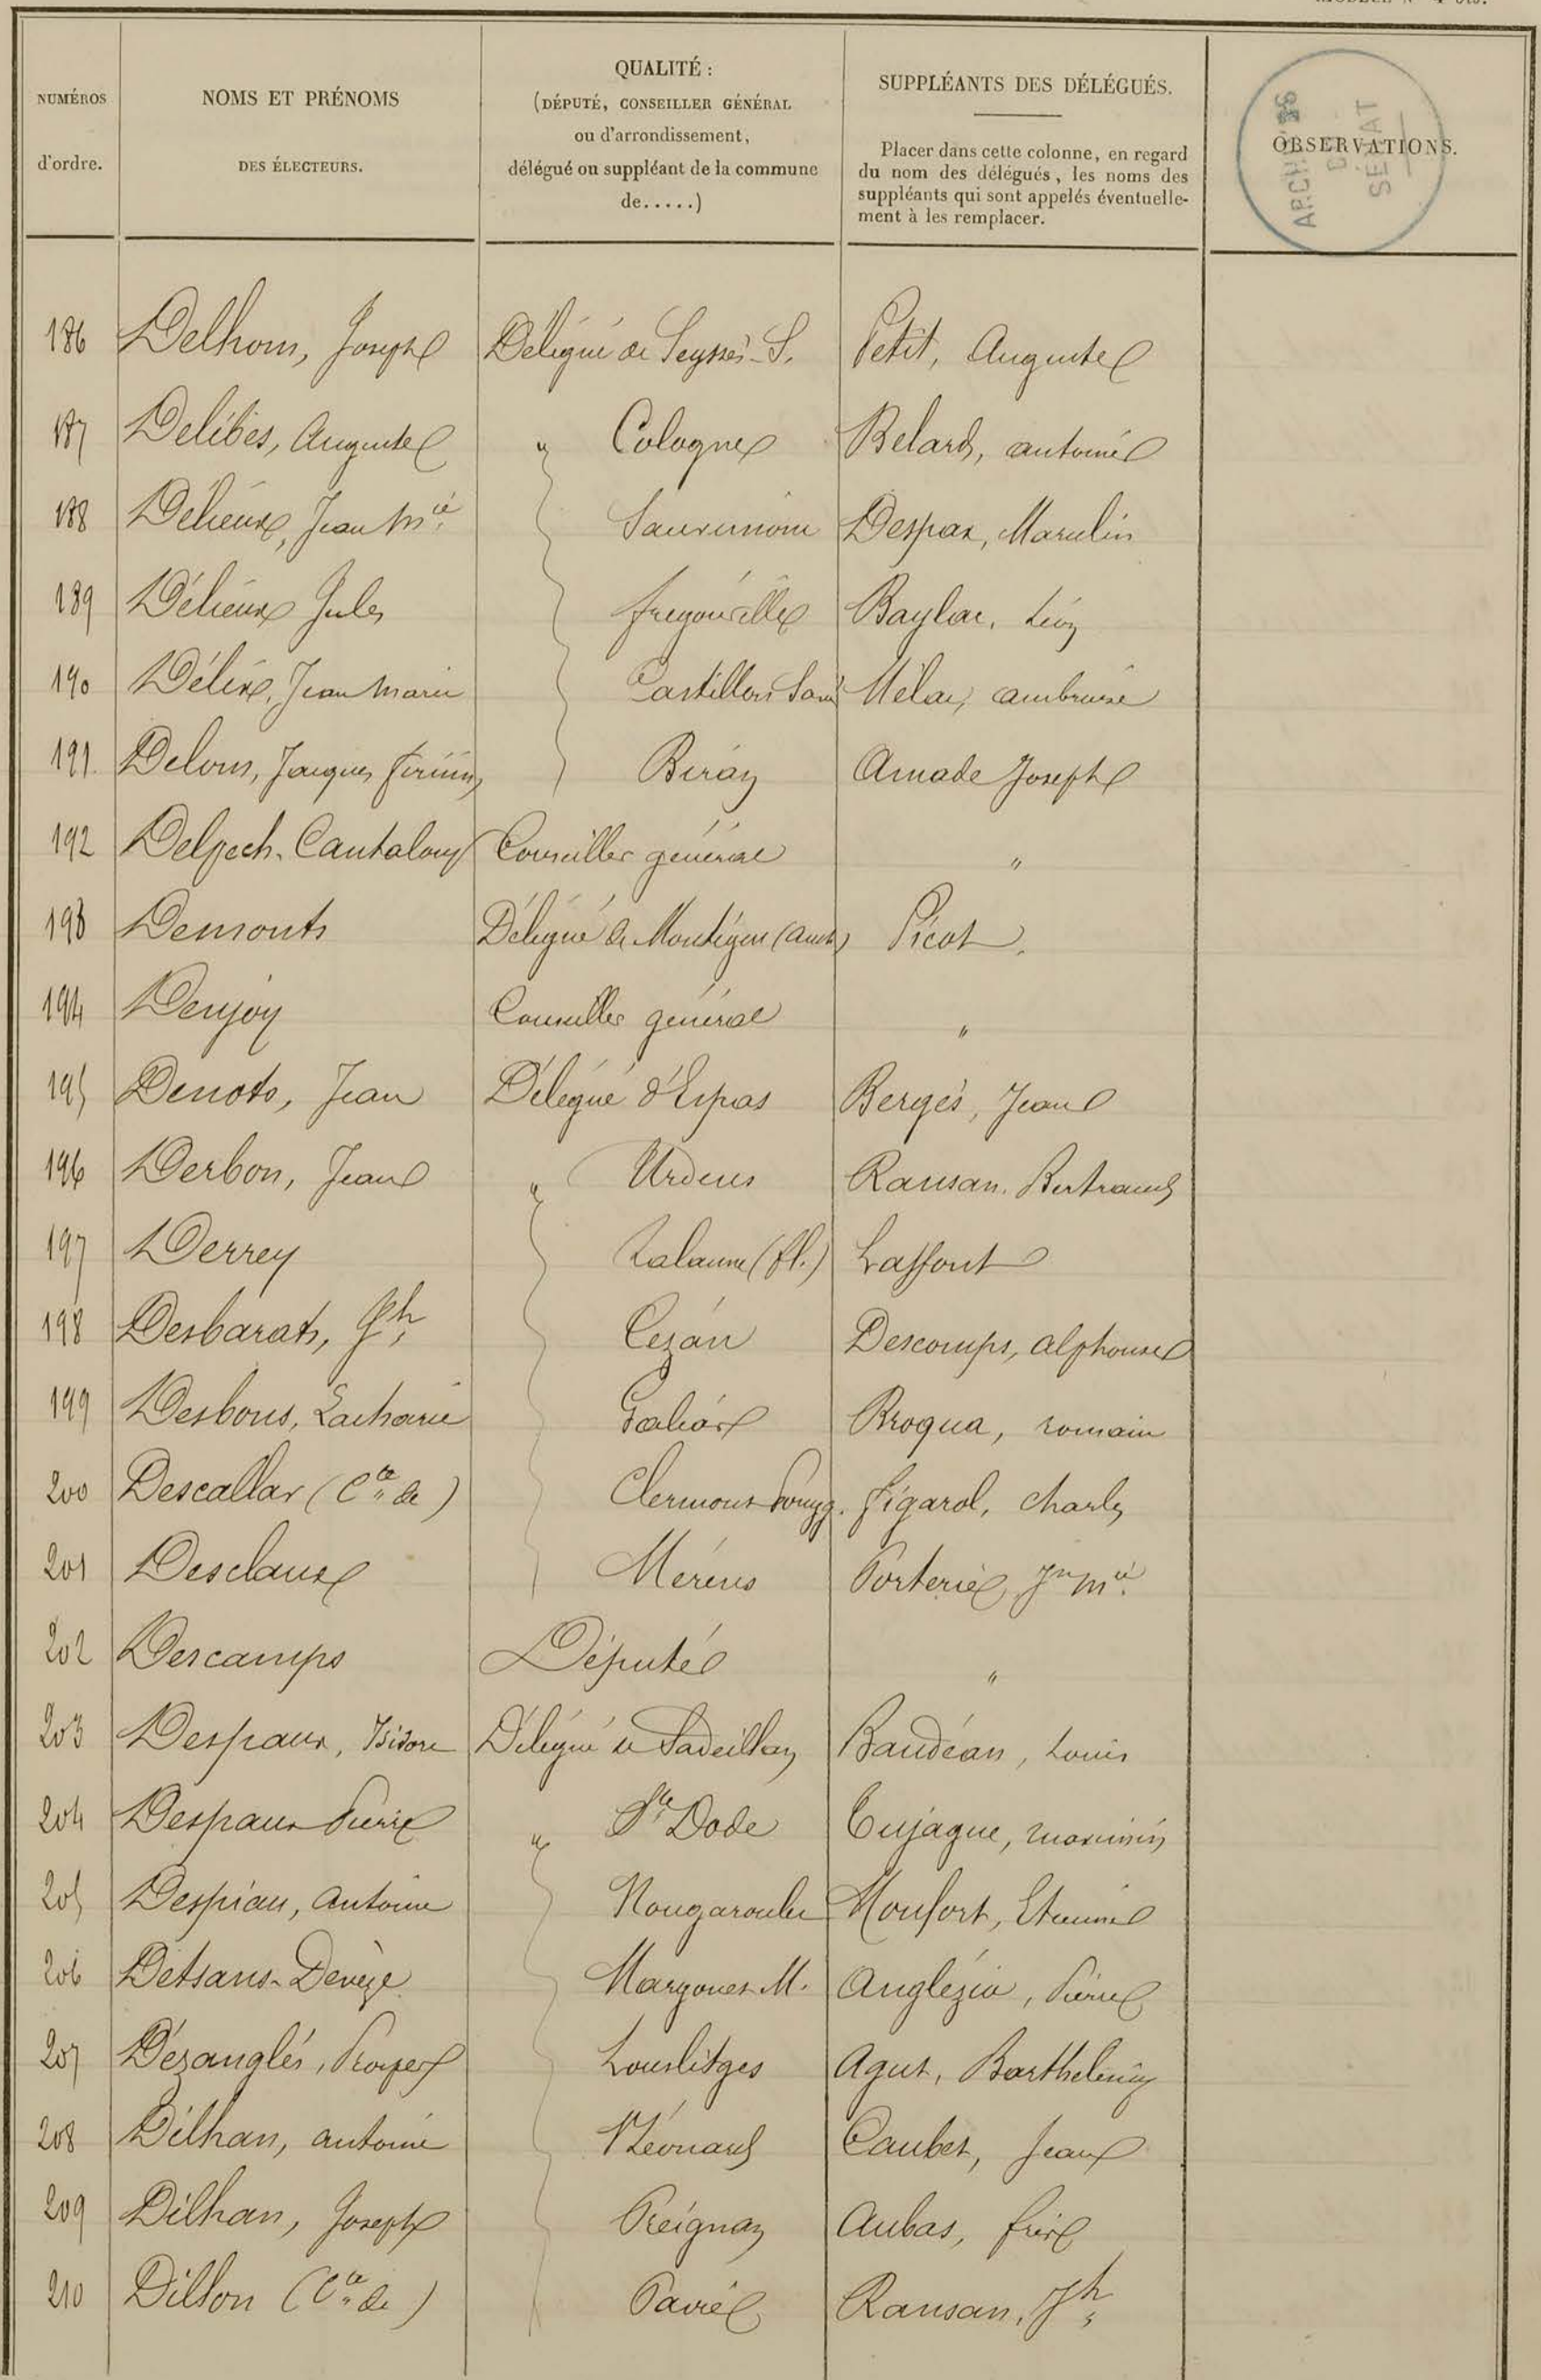 NUMÉROS d'ordre.
NOMS ET PRÉNOMS DES ÉLECTEURS.
QUALITÉ :
(DÉPUTÉ, CONSEILLER GÉNÉRAL
ou d'arrondissement,
délégué ou suppléant de la commune
de.....)
SUPPLÉANTS DES DÉLÉGUÉS.
Placer dans cette colonne, en regard
du nom des délégués, les noms des
suppléants qui sont appelés éventuelle-
ment à les remplacer.
OBSERVATIONS.
ARCHIVES DU SÉNAT
186 Delhom, Joseph Délégué de Seysses-S. Petit, Auguste
187 Delibes, Auguste " Cologne Belard, antoine
188 Délieux, Jean Mie Sauvimont Despax, Marcelin
189 Délieux Jules fregouville Baylac, Léon
190 Délix, Jean Marie Castillon Sav. Mélac, ambroise
191 Delom, Jacques firmin Biran Amade Joseph
192 Delpech-Cantaloup Conseiller général "
193 Demonts Délégué de Montégut (auch) Picot.
194 Denjoy Conseiller général "
195 Denots, Jean Délégué d'Espas Bergès, Jean
196 Derbon, Jean " Urdens Ransan, Bertrand
197 Derrey Lalanne (fl.) Laffont
198 Desbarats, Jh Cezan Descomps, alphonse
199 Desbons, Zacharie Galiax Broqua, romain
200 Descallar (Cte de) Clermont Pouyg. figarol, charles
201 Desclaux Mérens Porterie, Jn Mie
202 Descamps Député "
203 Despaux, Isidore Délégué de Sadeillan Baudéan, Louis
204 Despaux Pierre " Ste Dode Cujague, maximin
205 Despiau, antoine Nougaroulet Monfort, Etienne
206 Detsans-Devèze Margouet M. Anglézio, Pierre
207 Dézanglés, Prosper Louslitges Agut, Barthelemy
208 Dilhan, antoine St Léonard Caubet, Jean
209 Dilhan, Joseph Preignan Aubas, frix
210 Dillon (Cte de) Pavie Ransan, Jh